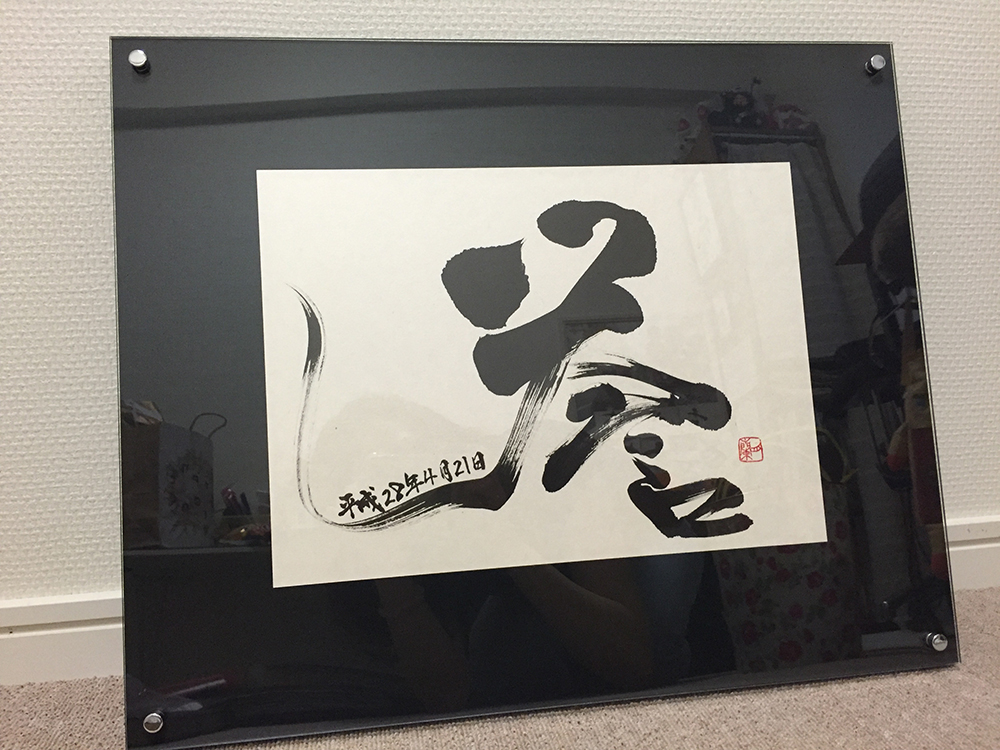 蒼
平成28年4月21日